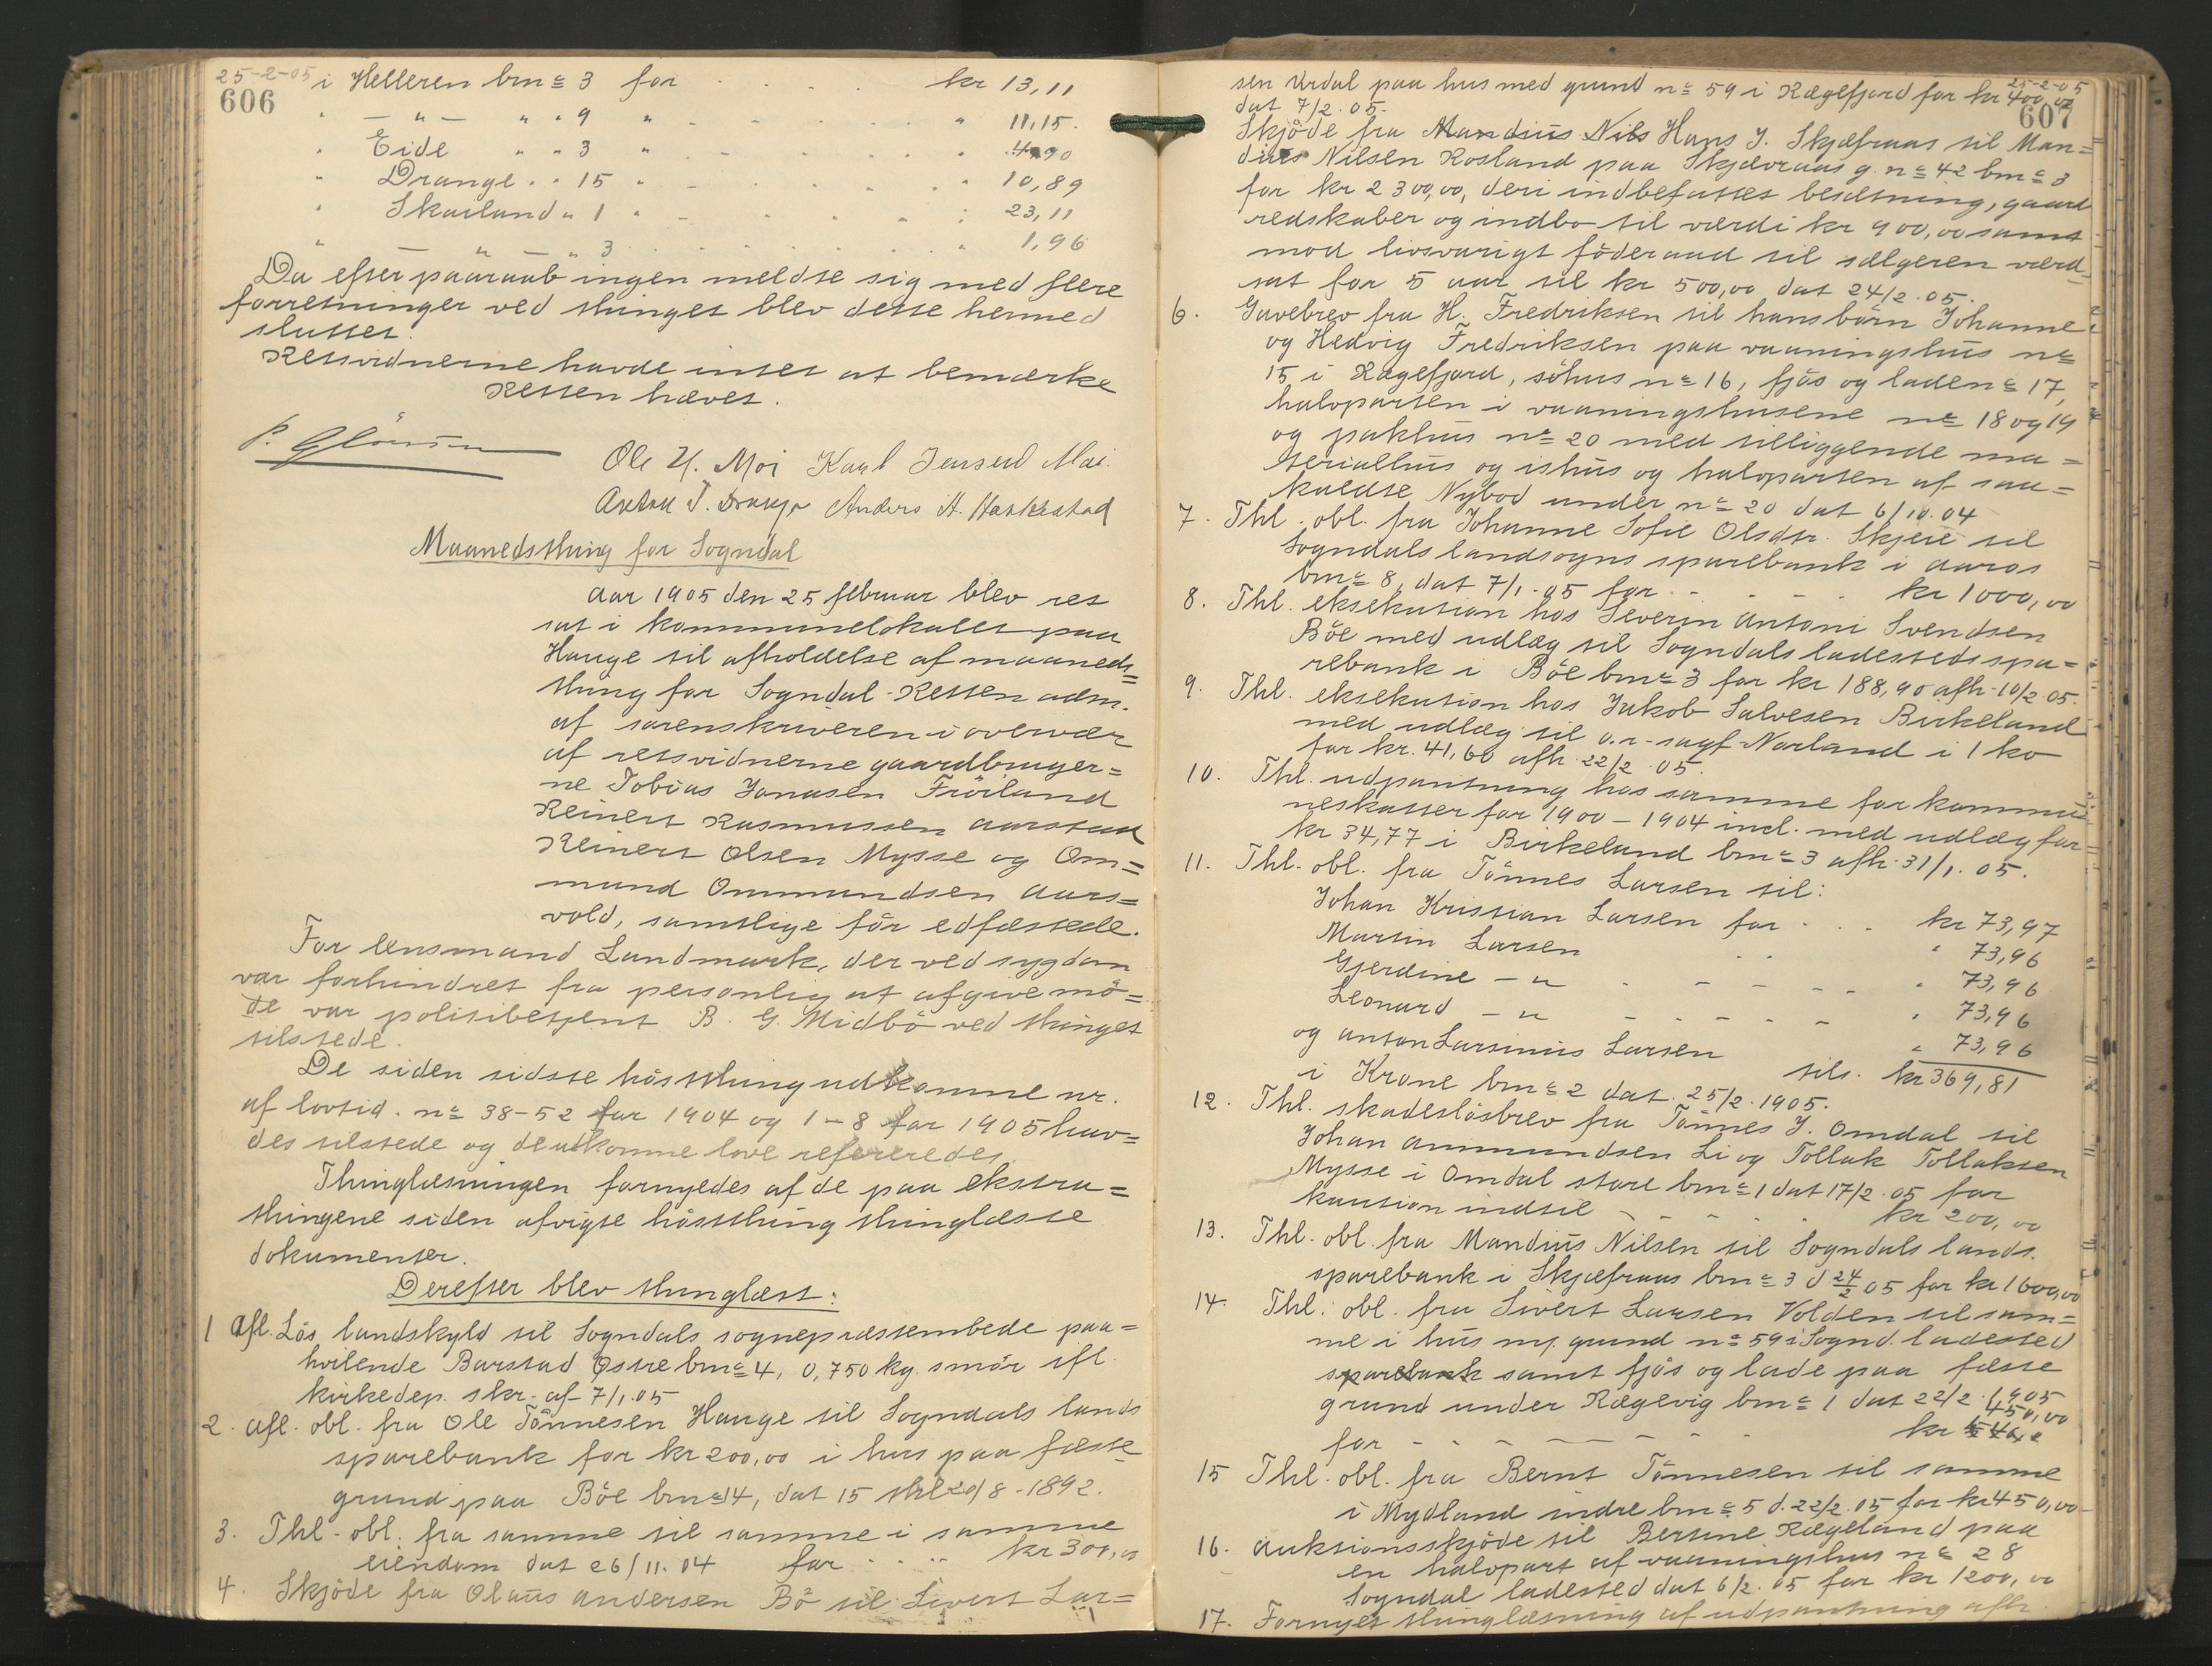 25-2-05 i Helleren bnr 3 for kr 13,11
606
" — " — " " 9 " " 11,15.
" Eide " " 3 " " 4,90
" Drange " " 15 " " 10,89
" Skailand " 1 " " 23,11
" — " — " 3 " 1,96
Da efter paaraab ingen meldte sig med flere
forretninger ved thinget blev dette hermed
sluttet.
Retsvidnerne havde intet at bemærke
Retten hævet.
Ole H. Moi Karl Jensen Moi.
Anton T. Drange Anders A. Haskestad
Maanedsthing for Sogndal
Aar 1905 den 25 februar blev ret
sat i kommunelokalet paa
Hauge til afholdelse af maaneds=
thing for Sogndal - Retten adm.
af sorenskriveren i overvær
af retsvidnerne gaardbruger=
ne Tobias Jonasen Fröiland
Reinert Rasmussen Aarstad
Reinert Olsen Mysse og Om=
mund Ommundsen Aars=
vold, samtlige för edfæstede.
For lensmand Landmark, der ved sygdom
var forhindret fra personlig at afgive mö=
de var politibetjent B. G. Midbö ved thinget
tilstede.
De siden sidste hösstthing udkomne nr.
af lovtid. nr 38-52 for 1904 og 1-8 for 1905 hav=
des tilstede og de udkomne love refereredes.
Thinglæsningen fornyedes af de paa ekstra=
thingene siden afvigte hösstthing thinglæste
dokumenter.
Derefter blev thinglæst:
1 Afl. Lös landskyld til Sogndals sognepræstembede paa=
hvilende Barstad Östre bnr 4, 0,750 kg. smör ifl.
kirkedep. skr. af 7/1.05
2. Afl. obl. fra Ole Tönnesen Hauge til Sogndals lands
sparebank for kr 200,00 i hus paa fæste
grund paa Böe bnr 14, dat 15 thl 20/8 - 1892.
3. Thl. obl. fra samme til samme i samme
eiendom dat 26/11.04 for kr 300,00
4. Skjöde fra Olaus Andersen Bö til Sivert Lar=
25-2-05
607
sen Urdal paa hus med grund nr 59 i Rægefjord for kr 400,00
dat 7/2.05.
Skjöde fra Mandius Nils Hans J. Skjæfraas til Man=
dius Nilsen Rosland paa Skjævraas g. nr 42 bnr 3
for kr 2300,00, deri indbefattet besætning, gaard
redskaber og indbo til værdi kr 900,00 samt
mod livsvarigt föderaad til sælgeren værd
sat for 5 aar til kr 500,00 dat 24/2.05.
6. Gavebrev fra H. Fredriksen til hans börn Johanne
og Hedvig Fredriksen paa vaaningshus nr
15 i Rægefjord, söhus nr 16, fjös og lade nr 17,
halvparten i vaaningshusene nr 18 og 19
og pakhus nr 20 med tilliggende ma=
terialhus og ishus og halvparten af saa=
kaldte Nybod under nr 20 dat 6/10.04
7. Thl. obl. fra Johanne Sofie Olsdtr. Skjeie til
Sogndals landsogns sparebank i Aaros
bnr 8, dat 7/1.05 for kr 1000,00
8. Thl. eksekution hos Severin Antoni Svendsen
Böe med udlæg til Sogndals ladesteds spa=
rebank i Böe bnr 3 for kr 188,90 afh. 10/2.05.
9. Thl. eksekution hos Jakob Salvesen Birkeland
med udlæg til o.r-sagf. Norland i 1 ko
for kr. 41,60 afh. 22/2.05.
10. Thl. udpantning hos samme for kommu
neskatter for 1900-1904 incl. med udlæg for
kr 34,77 i Birkeland bnr 3 afh. 31/1.05.
11. Thl. obl. fra Tönnes Larsen til:
Johan Kristian Larsen for kr 73,97
Martin Larsen " 73,96
Gjerdine — " " 73,96
Leonard — " " 73,96
og Anton Larsinius Larsen " 73,96
tils. kr 369,81
i Krone bnr 2 dat. 25/2.1905.
12. Thl. skadeslösbrev fra Tönnes J. Omdal til
Johan Ammundsen Li og Tollak Tollaksen
Mysse i Omdal store bnr 1 dat 17/2.05 for
kaution indtil kr 200,00
13. Thl. obl. fra Mandius Nilsen til Sogndals lands.
sparebank i Skjæfraas bnr 3 d 24/2 05 for kr 1600,00
14. Thl. obl. fra Sivert Larsen Volden til sam=
me i hus m. grund nr 59 i Sognd. ladested
sparebank samt fjös og lade paa fæste
grund under Rægevig bnr 1 dat 22/2.1905
450,00
for kr
15 Thl. obl. fra Bernt Tönnesen til samme
i Mydland indre bnr 5 d. 22/2.05 for kr 450,00
16. Auktionsskjöde til Bertine Rægeland paa
en halvpart af vaaningshus nr 28
Sogndal ladested dat 6/2.05 for kr 1200,00
17. Fornyet thinglæsning af udpantning afh.